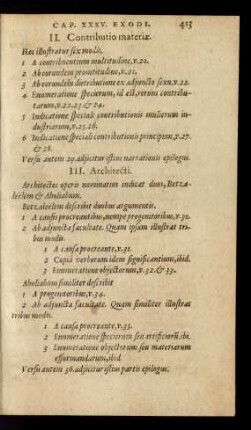 CAP. XXXV. EXODI. 415
II. Contributio materiæ.
Hæc illustratur sex modis.
1 A contribuentium multitudine, v.20.
2 Ab eorundem promtitudine, v.21.
3 Ab eorundem distributione ex adjuncto sexu, v.22.
4 Enumeratione specierum, id est, rerum contributarum, v.22.23. & 24.
5 Indicatione speciali contributionis mulierum industriarum, v.25.26.
6 Indicatione speciali contributionis principum, v.27.
& 28.
Versu autem 29. adjicitur istius narrationis epilogus.
III. Architecti.
Architectos operis nominatim indicat duos, Betzaleelem & Aholiabum.
Betzaleelem describit duobus argumentis.
1 A causis procreantibus, nempe progenitoribus, v.30.
2 Ab adjuncta facultate. Quam ipsam illustrat tribus modis.
1 A causa procreante, v.31.
2 Copia verborum idem significantium, ibid.
3 Enumeratione objectorum, v.32. & 33.
Aholiabum similiter describit
1 A progenitoribus, v.34.
2 Ab adjuncta facultate. Quam similiter illustrat
tribus modis.
1 A causa procreante, v.35.
2 Enumeratione specierum seu artificiorũ, ibi.
3 Enumeratione objectorum seu materiarum
efformandarum, ibid.
Versu autem 36. adjicitur istius partis epilogus.